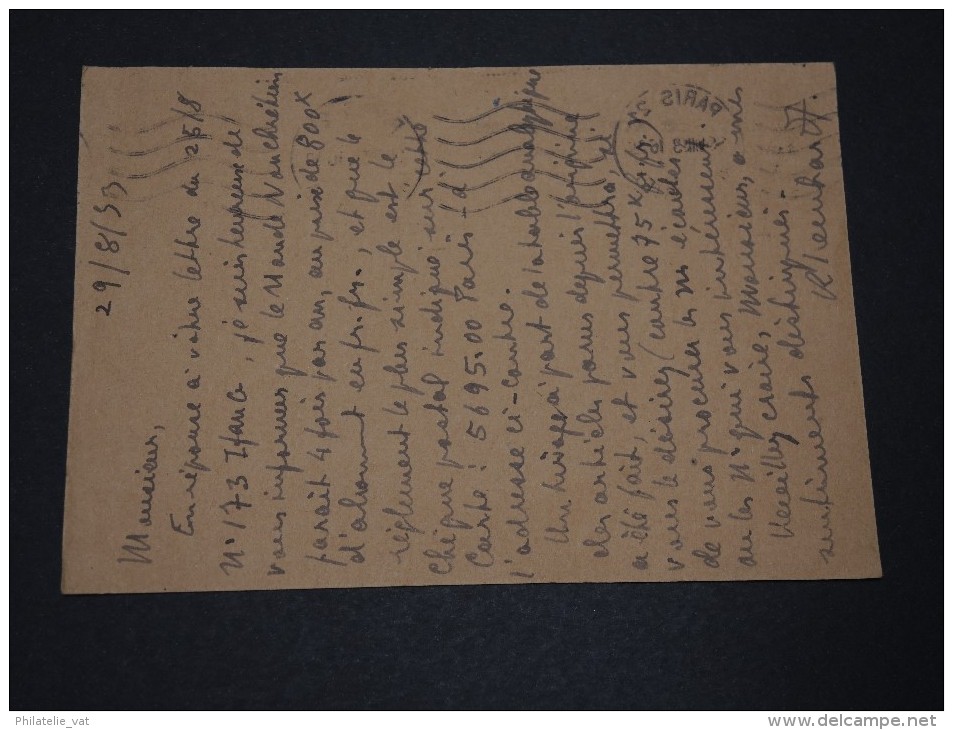 29/8/53
Monsieur,
En réponse à votre lettre du 25/8
N. 173 7 , je suis heureuse de
vous informer que le Monde Non chrétien
paraît 4 fois par an, au prix de 800
d'abonnement en fr. fr., et que le
règlement le plus simple est le
Chèque postal indiqué sur cette
Carte : 5695.00 Paris - à
l'adresse ci-contre.
Un tirage à part de la table analytique
des articles parus depuis l'origine
a été fait, et vous permettra, si
vous le désirez (contre 75 fr. fr.)
de vous procurer les
ou les N. qui vous intéressent.
Veuillez croire, Monsieur, à mes
sentiments distingués -
R
PARIS
Philatelie_vat
www.delcampe.net